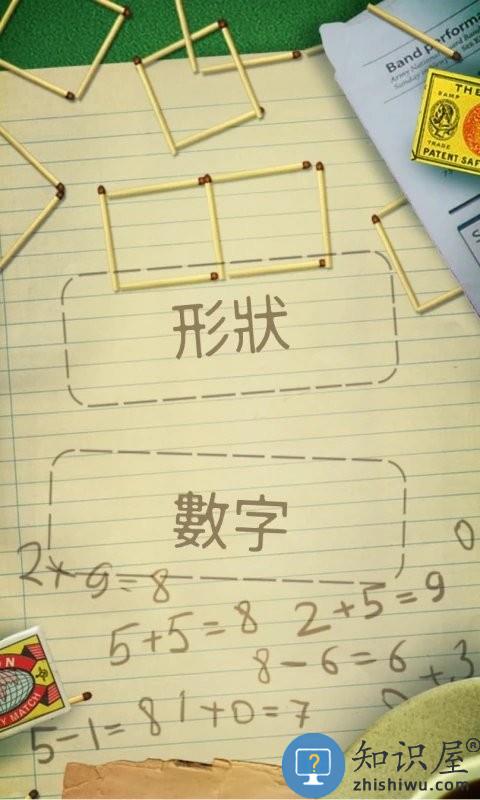 Band Performa
Army National
THE
TRADE
PATENT SAF
形狀
數字
0
2+9=8
5+5=8
2+5=9
8-6=6
+3
5-1=8
1+0=7
MATCH
知识屋®
zhishiwu.com